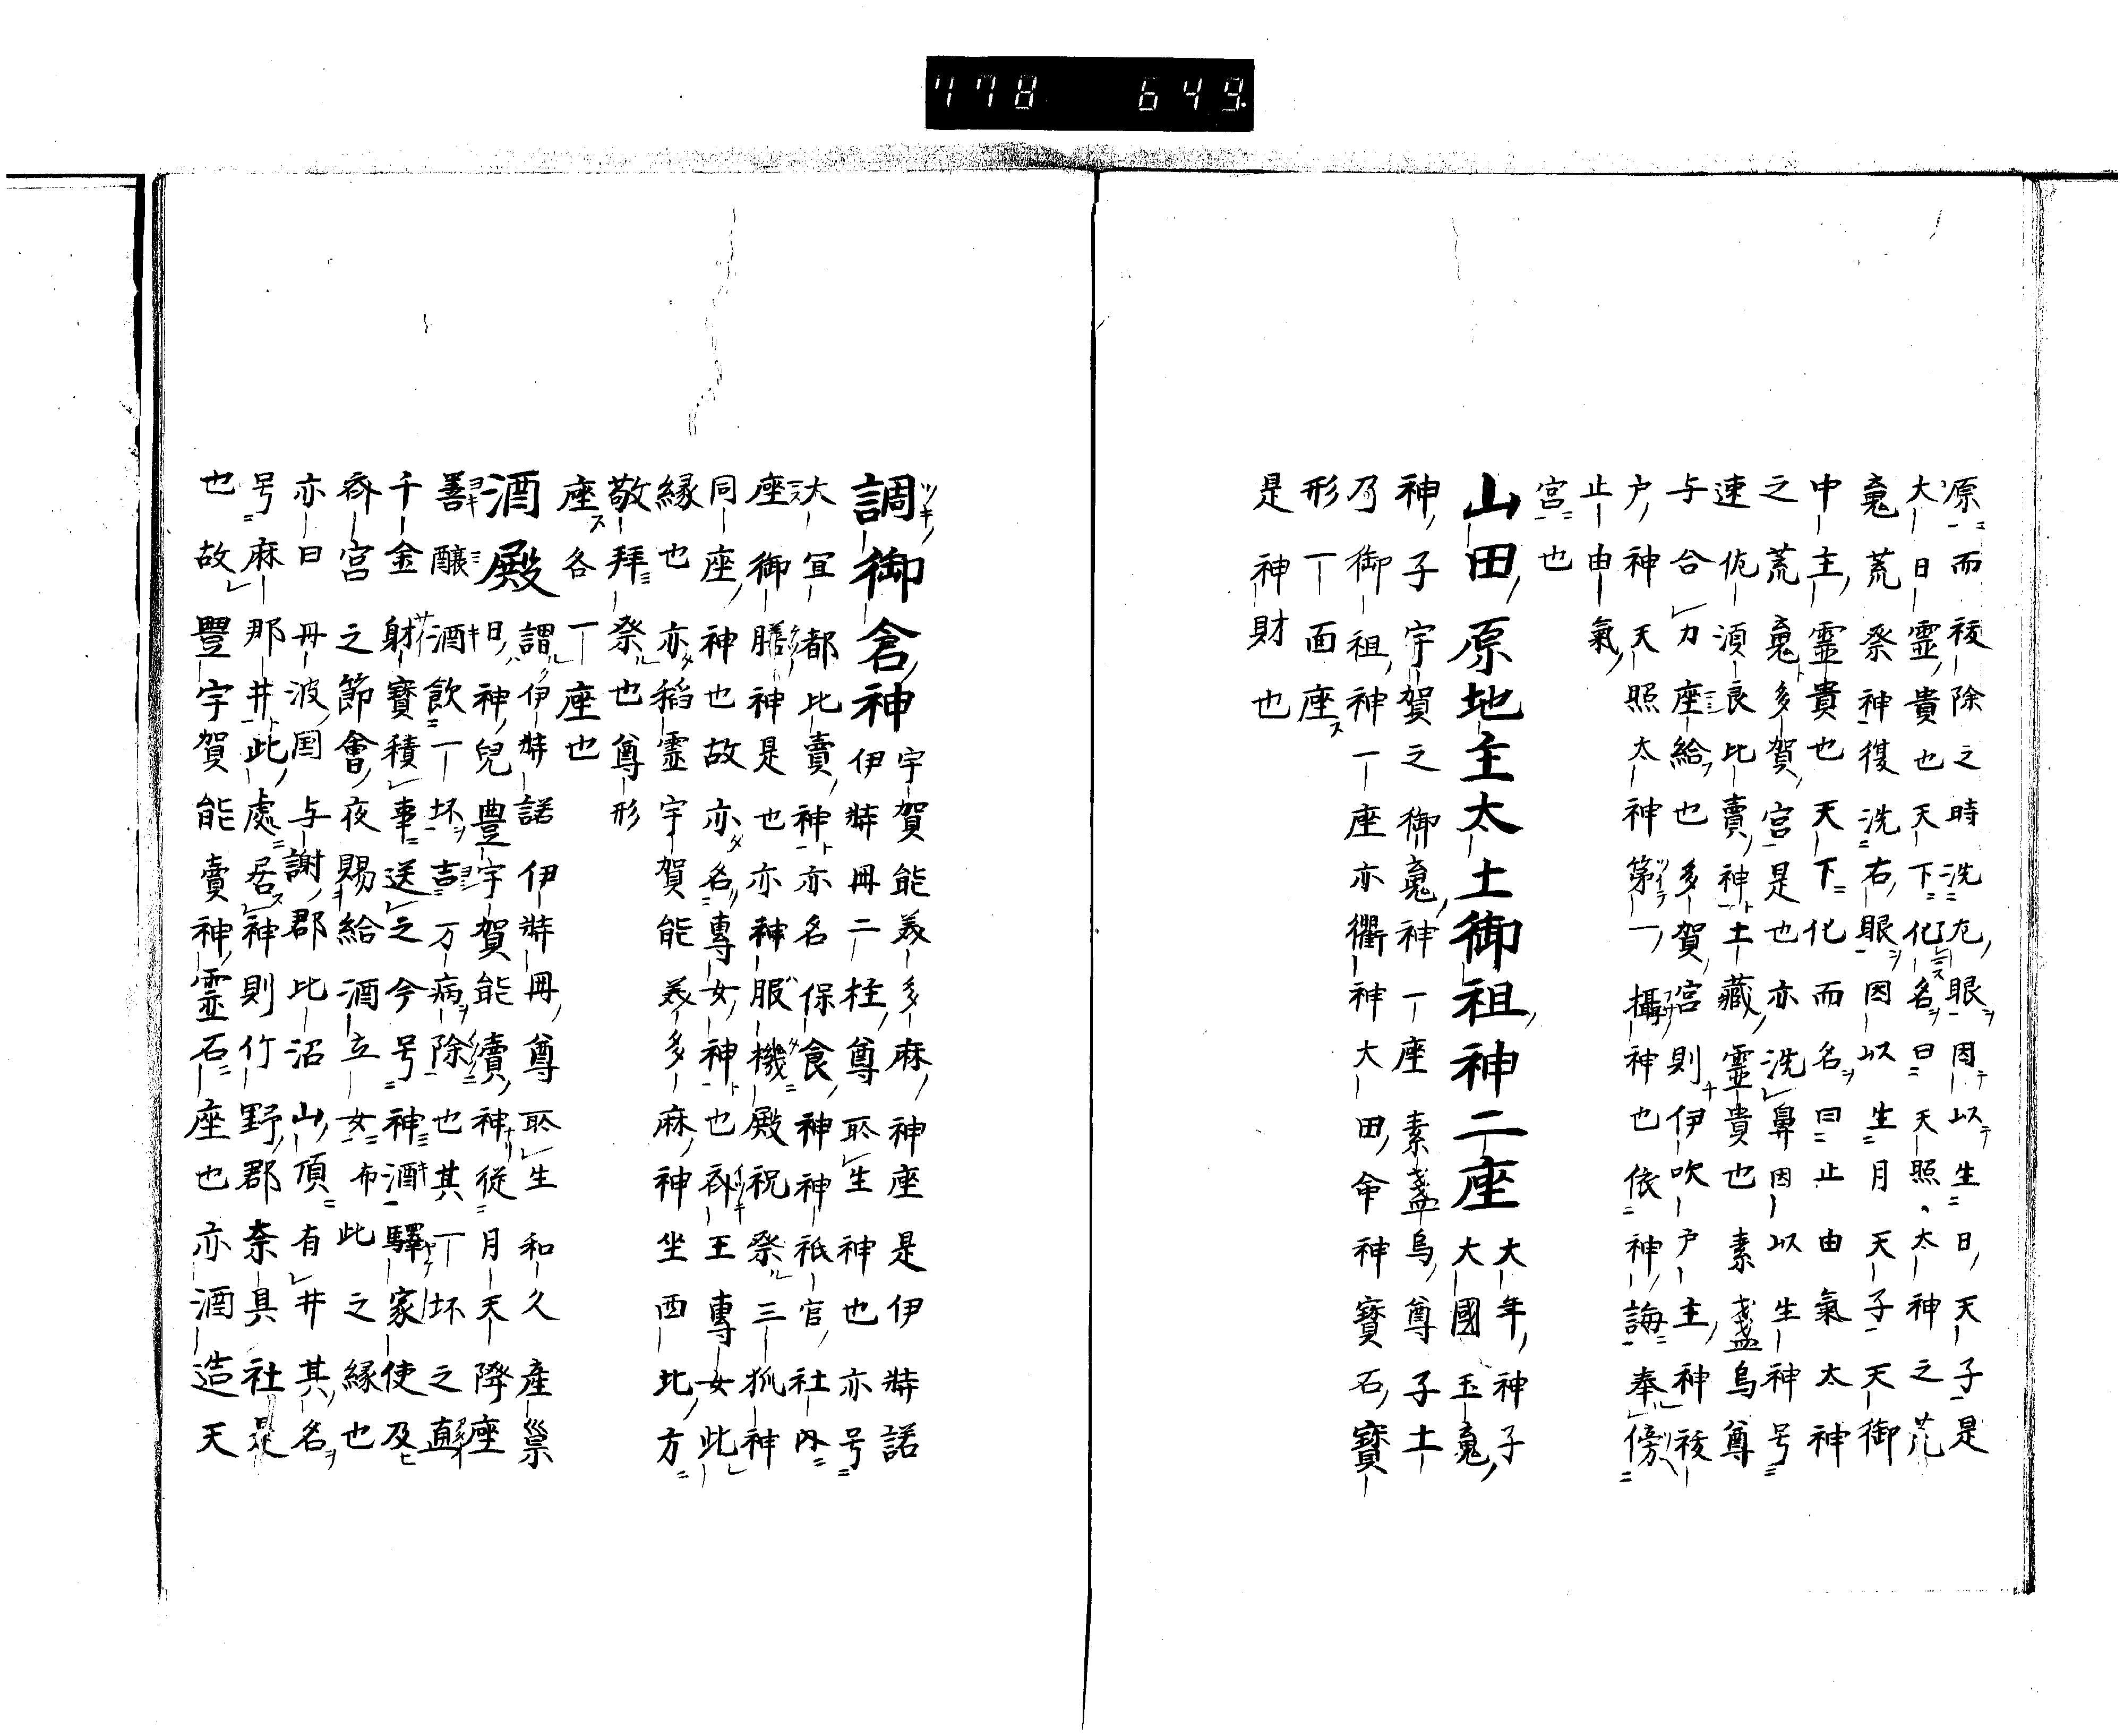 778 649
原而祓除之時洗左眼因以生日天子是
大日靈貴也天下化名曰天照太神之荒
䰟荒祭神復洗右眼因以生月天子天御
中主靈貴也天下化而名曰止由氣太神
之荒䰟多賀宮是也亦洗鼻因以生神号
速佐須良比賣神土藏靈貴也素盞烏尊
与合力座給也多賀宮則伊吹戸主神祓
戸神天照太神第一攝神也依神誨奉傍
止由氣
宮也
山田原地主太土御祖神二座 大年神子
大國玉䰟
神子宇賀之御䰟神一座 素盞烏尊子土
乃御祖神一座亦衢神大田命神寳石寳
形一面座
是神財也
調御倉神 宇賀能美多麻神座是伊弉諾
伊弉冊二柱尊所生神也亦号
大宜都比賣神亦名保食神神祇官社内
座御膳神是也亦神服機殿祝祭三狐神
同座神也故亦名專女神也斎王專女此
縁也亦稻靈宇賀能美多麻神坐西北方
敬拜祭也尊形
座各一座也
酒殿 謂伊弉諾伊弉冊尊所生和久産巢
日神兒豊宇賀能賣神從月天降座
善釀酒飲一坏吉万病除也其一坏之直
千金財寳積車送之今号神酒驛家使及
斎宮之節會夜賜給酒立女布此之縁也
亦曰丹波国与謝郡比沼山頂有井其名
号麻那井此處居神則竹野郡奈具社是
也故豐宇賀能賣神靈石座也亦酒造天